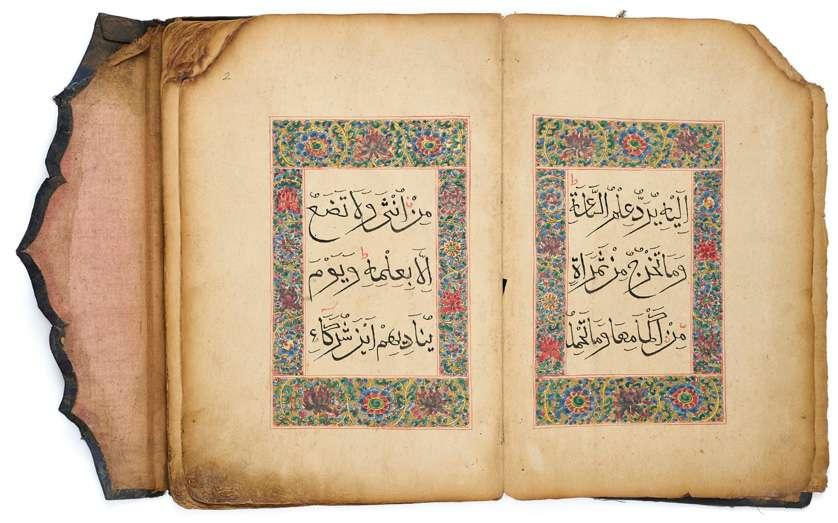 اِلَيْهِ يُرَدُّ عِلْمُ السَّاعَةِ
وَمَا تَخْرُجُ مِنْ ثَمَرَاةٍ
مِنْ اَكْمَامِهَا وَمَا تَحْمِلُ
2
مِنْ اُنْثٰى وَلَا تَضَعُ
اِلَّا بِعِلْمِهٖ ط وَيَوْمَ
يُنَادِيهِمْ اَيْنَ شُرَكَاءِ